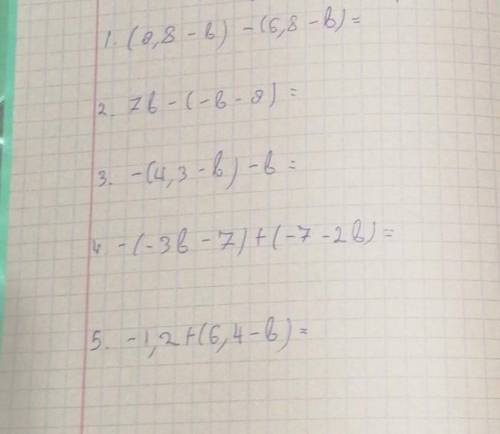 1. (0,8 - b) - (6,8 - b) =
2. 7b - (-b - 8) =
3. -(4,3 - b) - b =
4. -(-3b - 7) + (-7 - 2b) =
5. -1,2 + (6,4 - b) =